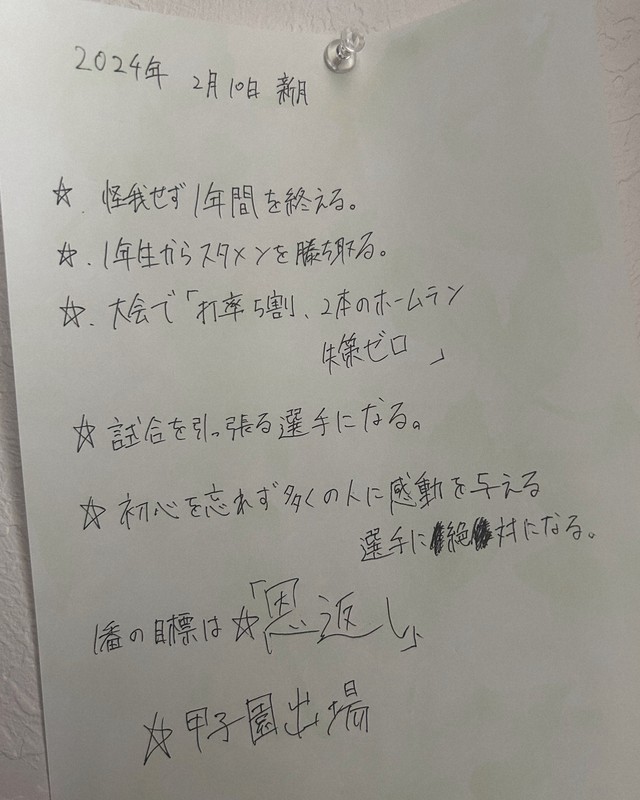 2024年 2月10日 新月
☆. 怪我せず1年間を終える。
☆. 1年生からスタメンを勝ち取る。
☆. 大会で「打率5割、2本のホームラン
失策ゼロ 」
☆ 試合を引っ張る選手になる。
☆ 初心を忘れず多くの人に感動を与える
選手に絶対になる。
1番の目標は☆「恩返し」
☆甲子園出場